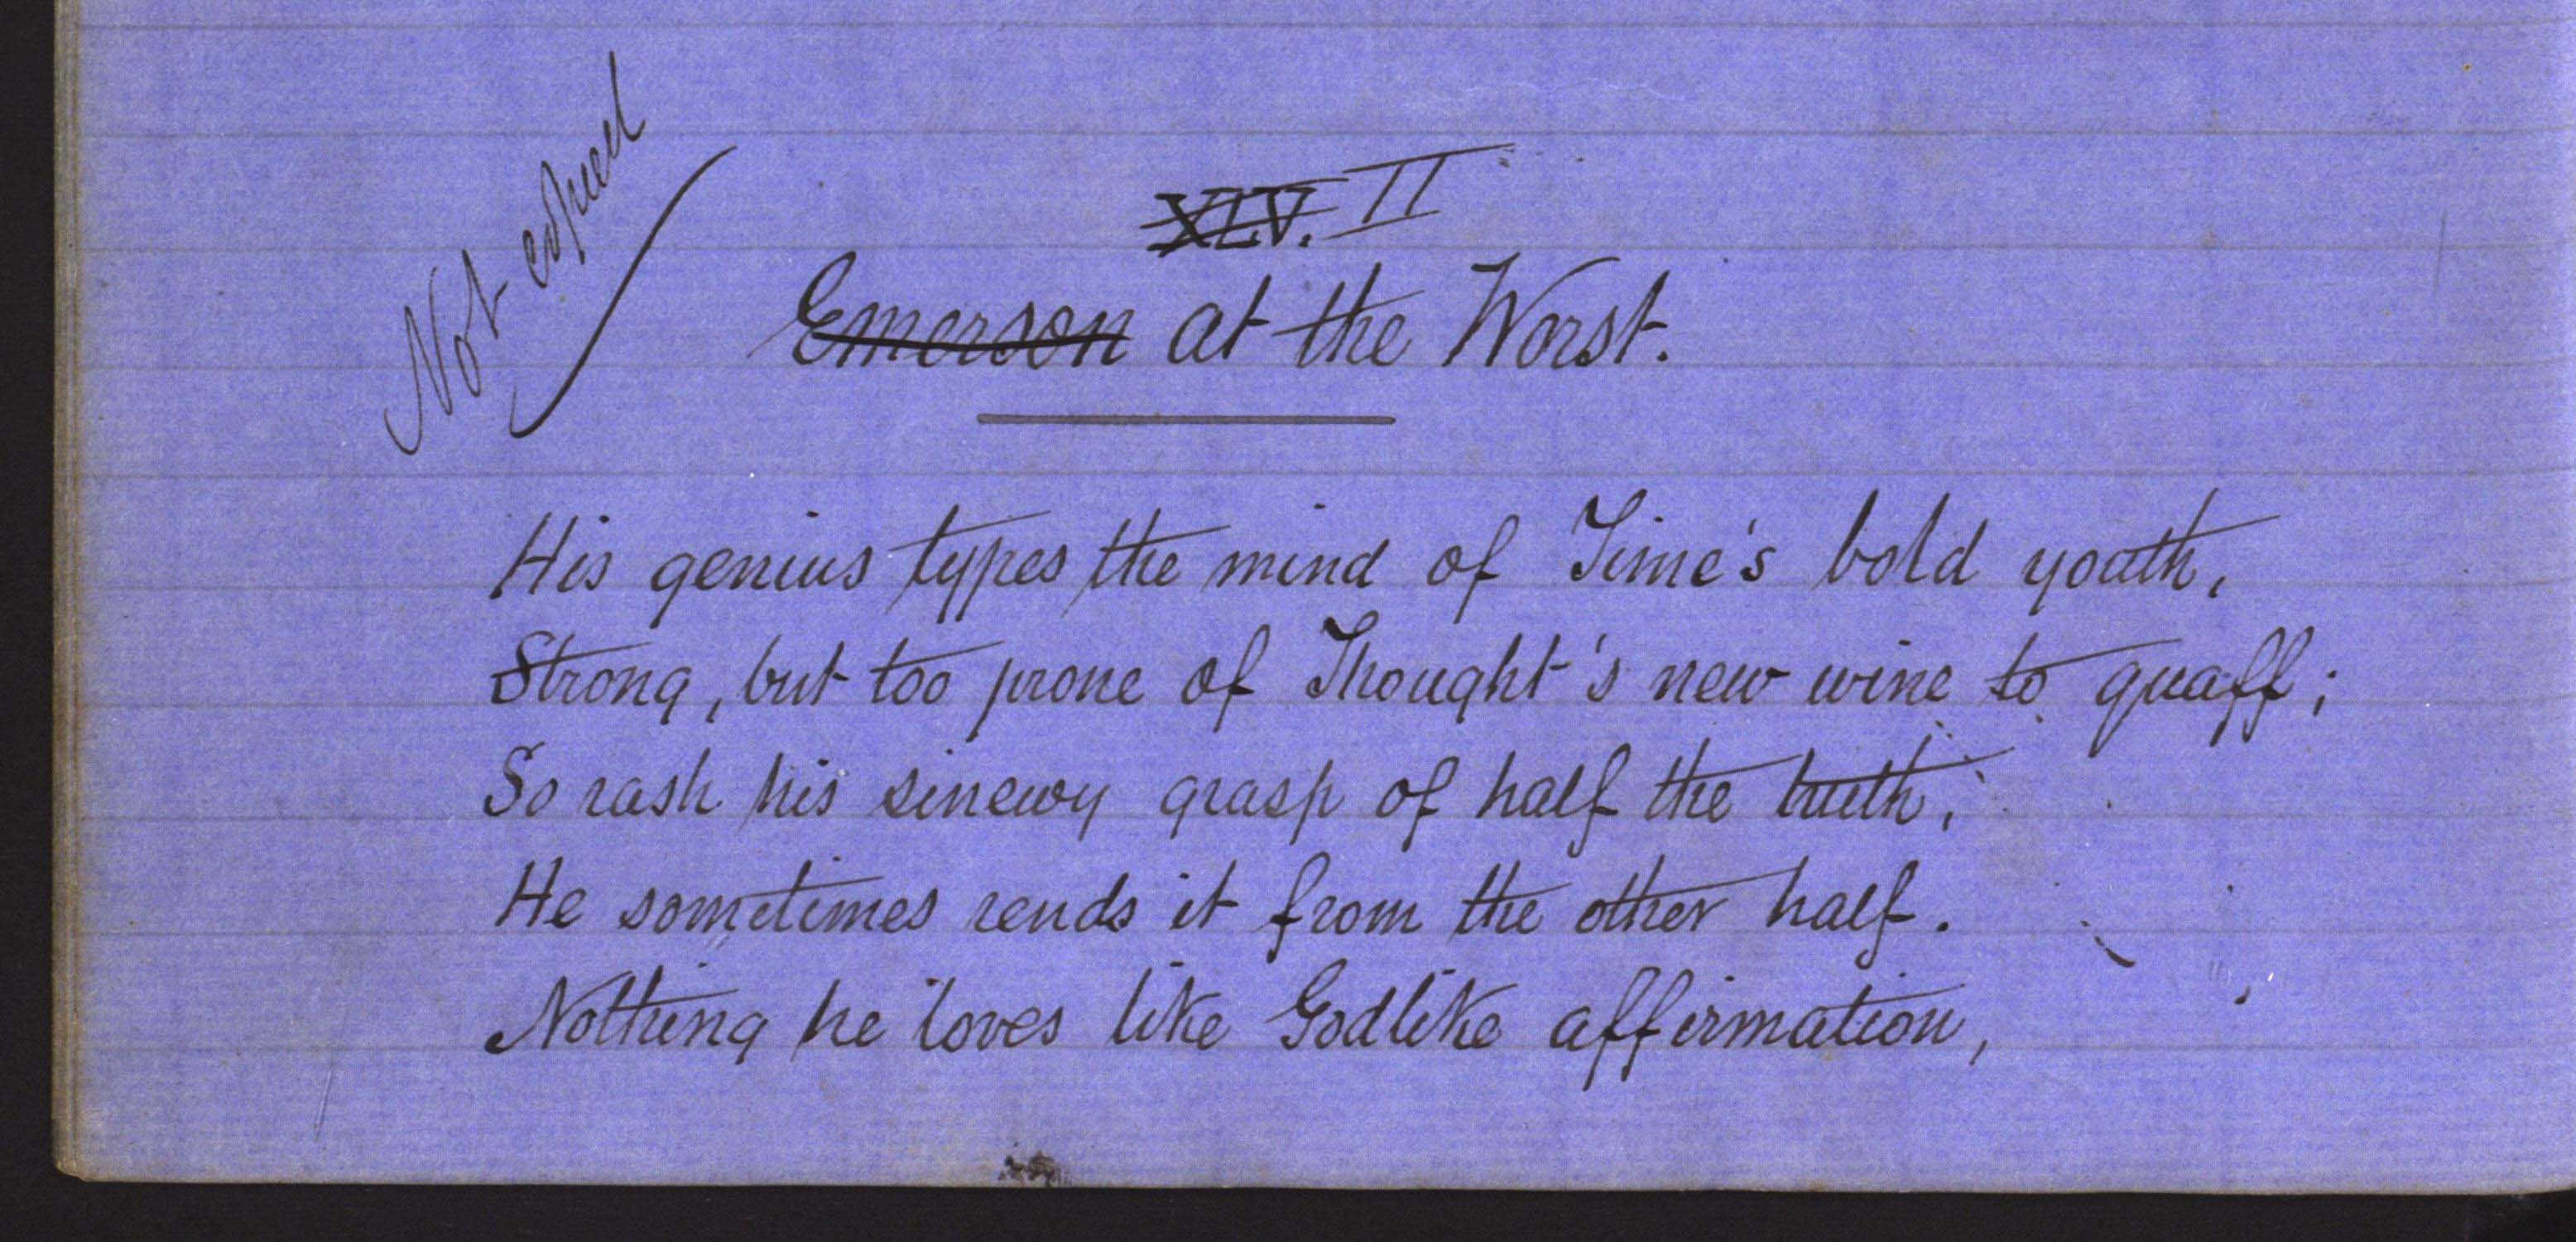 Not copied
XLV. II
Emerson at the Worst.
His genius types the mind of Time's bold youth,
Strong, but too prone of Thought's new wine to quaff;
So rash his sinewy grasp of half the truth,
He sometimes rends it from the other half.
Nothing he loves like Godlike affirmation,